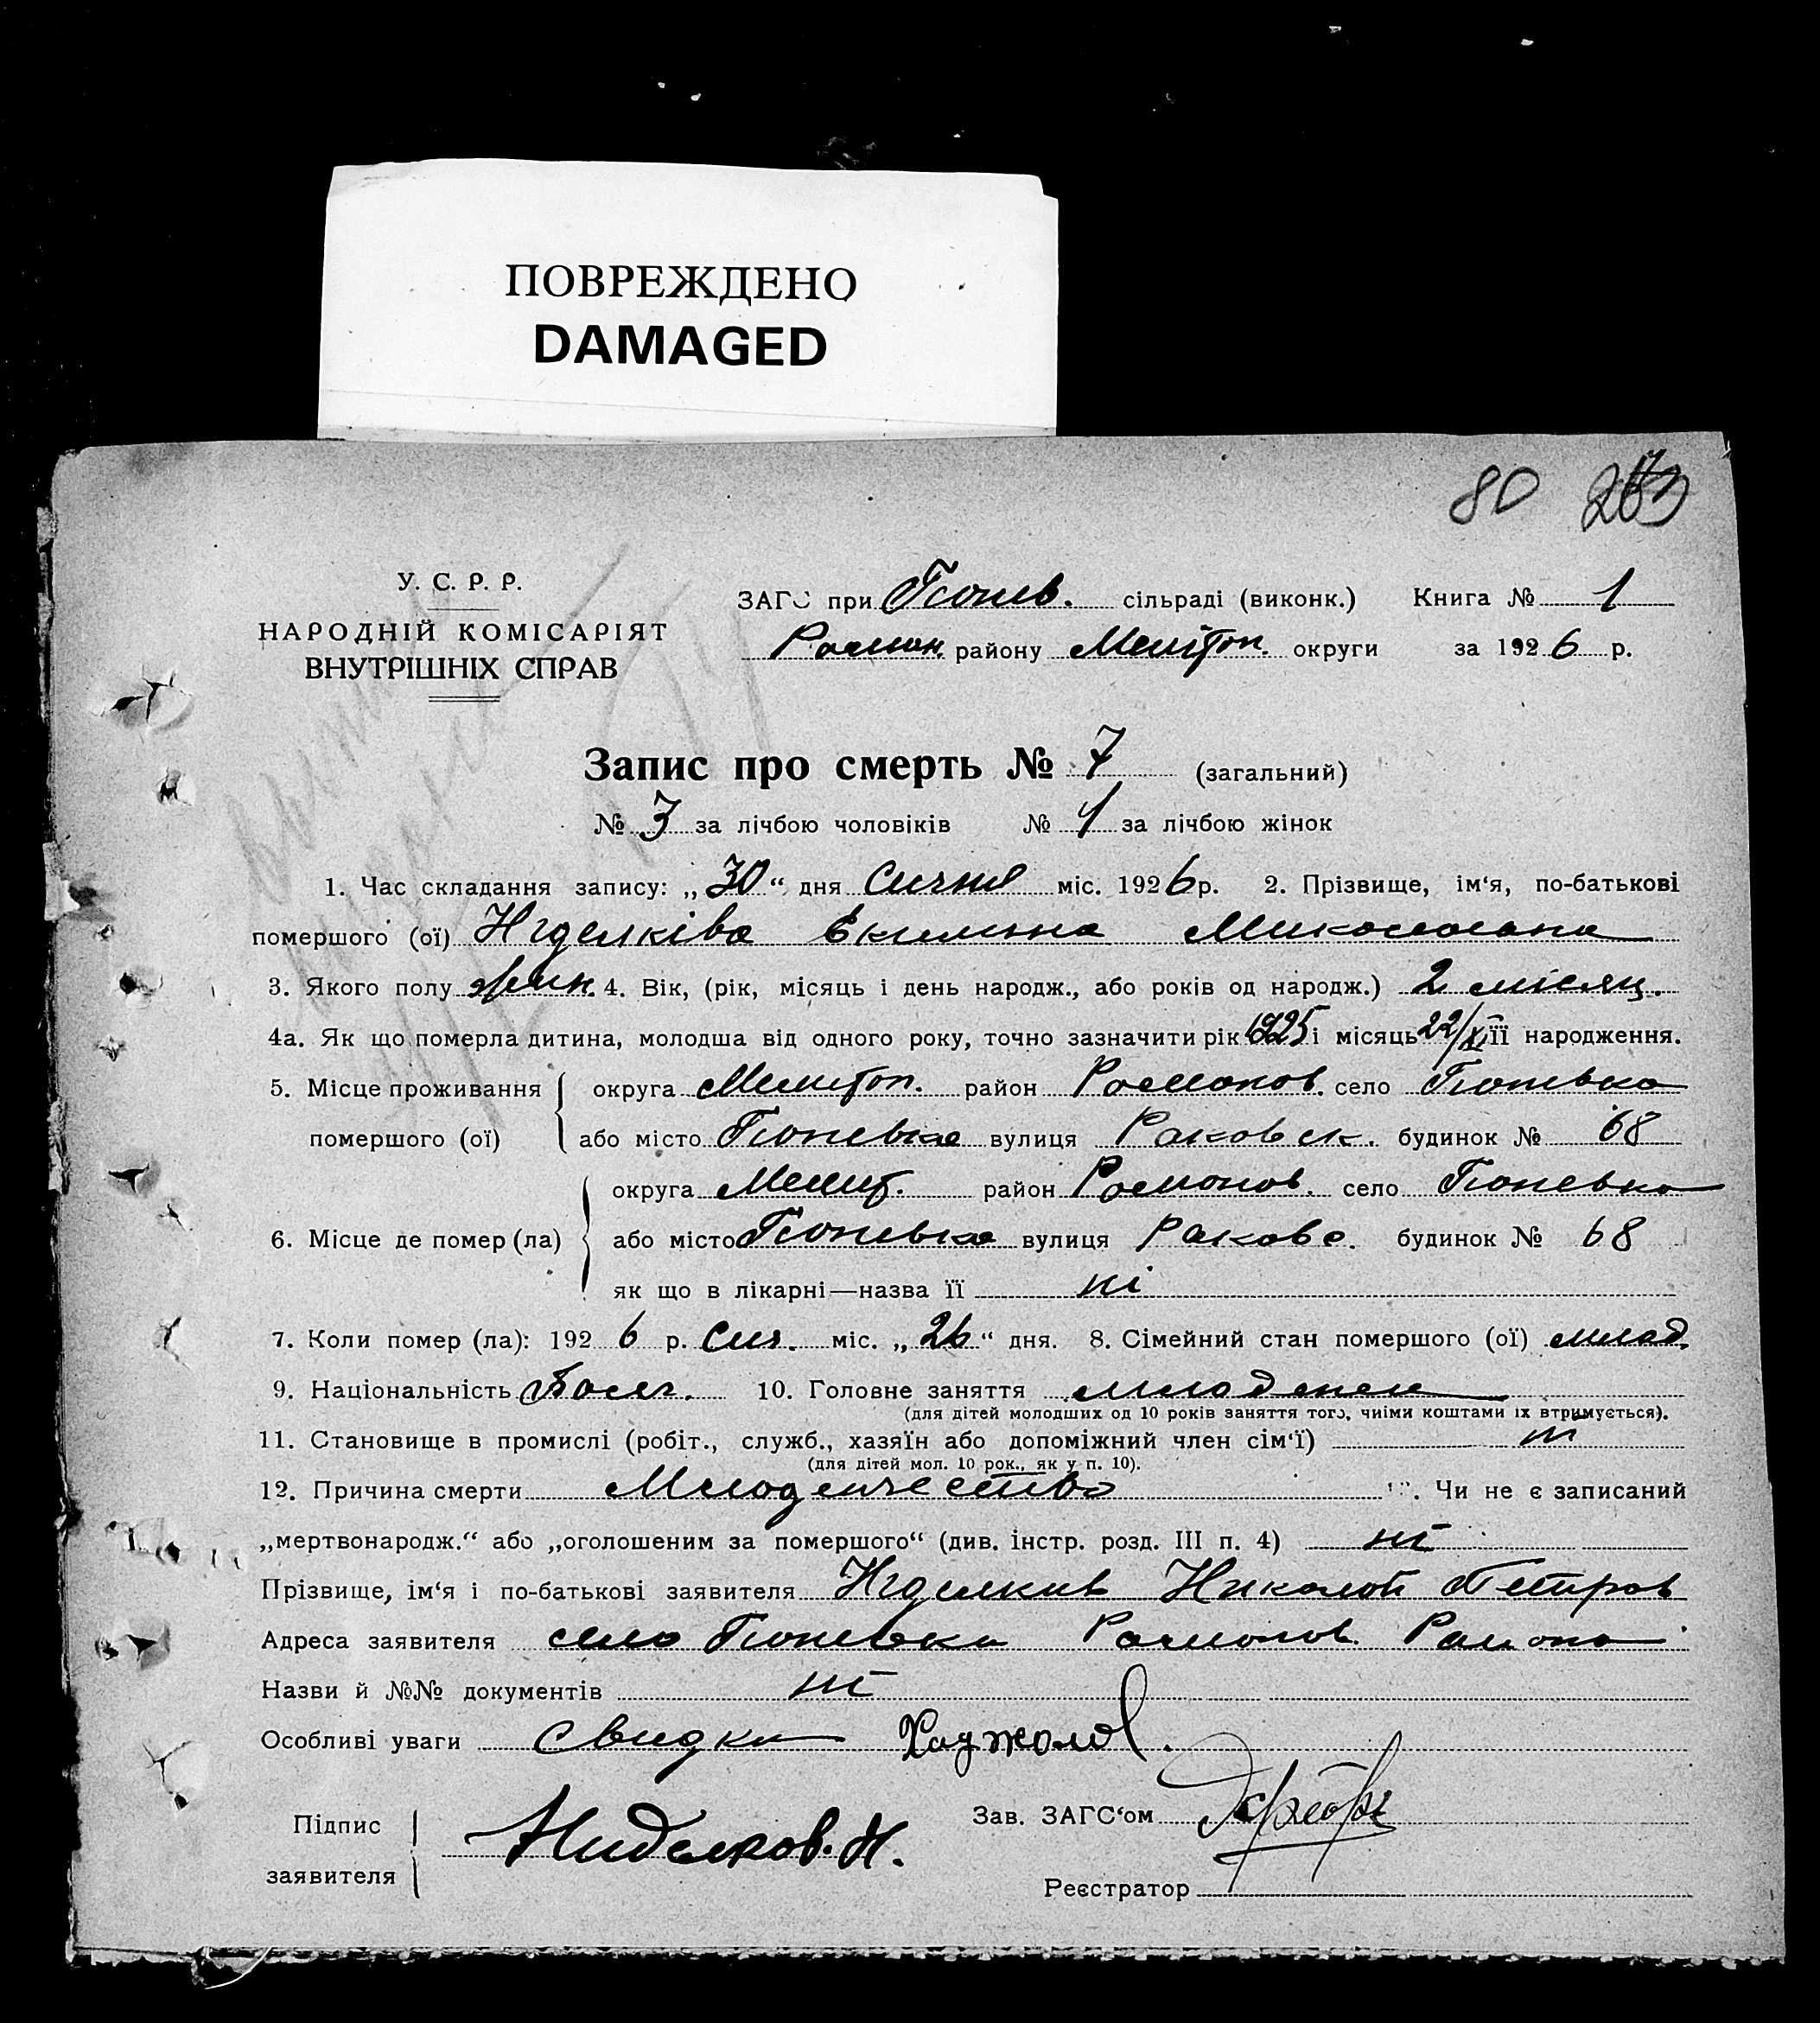 ПОВРЕЖДЕНО
DAMAGED
80
У. С. Р. Р.
НАРОДНІЙ КОМІСАРІЯТ
ВНУТРІШНІХ СПРАВ
ЗАГС при Гюнев. сільраді (виконк.) Книга № 1
Роман. району Мелітоп. округи за 1926 р.
Запис про смерть № 7 (загальний)
№ 3 за лічбою чоловіків № 4 за лічбою жінок
1. Час складання запису: „30“ дня Січня міс. 1926 р. 2. Прізвище, ім‘я, по-батькові
помершого (ої) Нєделківа Миколаєвна
3. Якого полу жин. 4. Вік, (рік, місяць і день народж., або років од народж.) 2 місяц.
4а. Як що померла дитина, молодша від одного року, точно зазначити рік 1925 і місяць 22/XI її народження.
5. Місце проживання округа Мелитоп. район Романов. село Гюневка
помершого (ої) або місто Гюневка вулиця Раковск. будинок № 68
округа Мелит. район Романов. село Гюневка
6. Місце де помер (ла) або місто Гюневка вулиця Раковс. будинок № 68
як що в лікарні—назва її ні
7. Коли помер (ла): 1926 р. Сич. міс. „26“ дня. 8. Сімейний стан помершого (ої) млад.
9. Національність Болг. 10. Головне заняття младенец
(для дітей молодших од 10 років заняття того, чиїми коштами їх втримується).
11. Становище в промислі (робіт., служб., хазяїн або допоміжний член сім‘ї) ні
(для дітей мол. 10 рок., як у п. 10).
12. Причина смерти Младенчество Чи не є записаний
„мертвонародж.“ або „оголошеним за помершого“ (див. інстр. розд. III п. 4) ні
Прізвище, ім‘я і по-батькові заявителя Нєделкив Николай Петров
Адреса заявителя село Гюневка Романов. Района
Назви й №№ документів ні
Особливі уваги свидки Хаджолов.
Підпис Ниделков. Н. Зав. ЗАГС‘ом
заявителя
Реєстратор